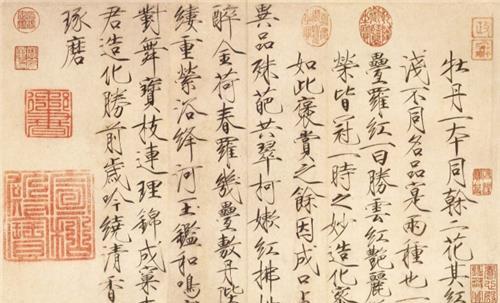 牡丹一本同榦二花其紅
淺不同名品寔兩種也
疊羅紅一曰勝雲紅艷麗
榮皆冠一時之妙造化
如此褒賞之餘因成口
異品殊葩共翠柯嫩紅拂
醉金荷春羅幾疊敷丹陛
縷重縈浴絳河玉鑑和鳴
對舞寶枝連理錦成窠
君造化勝前歲吟繞清香
琢磨